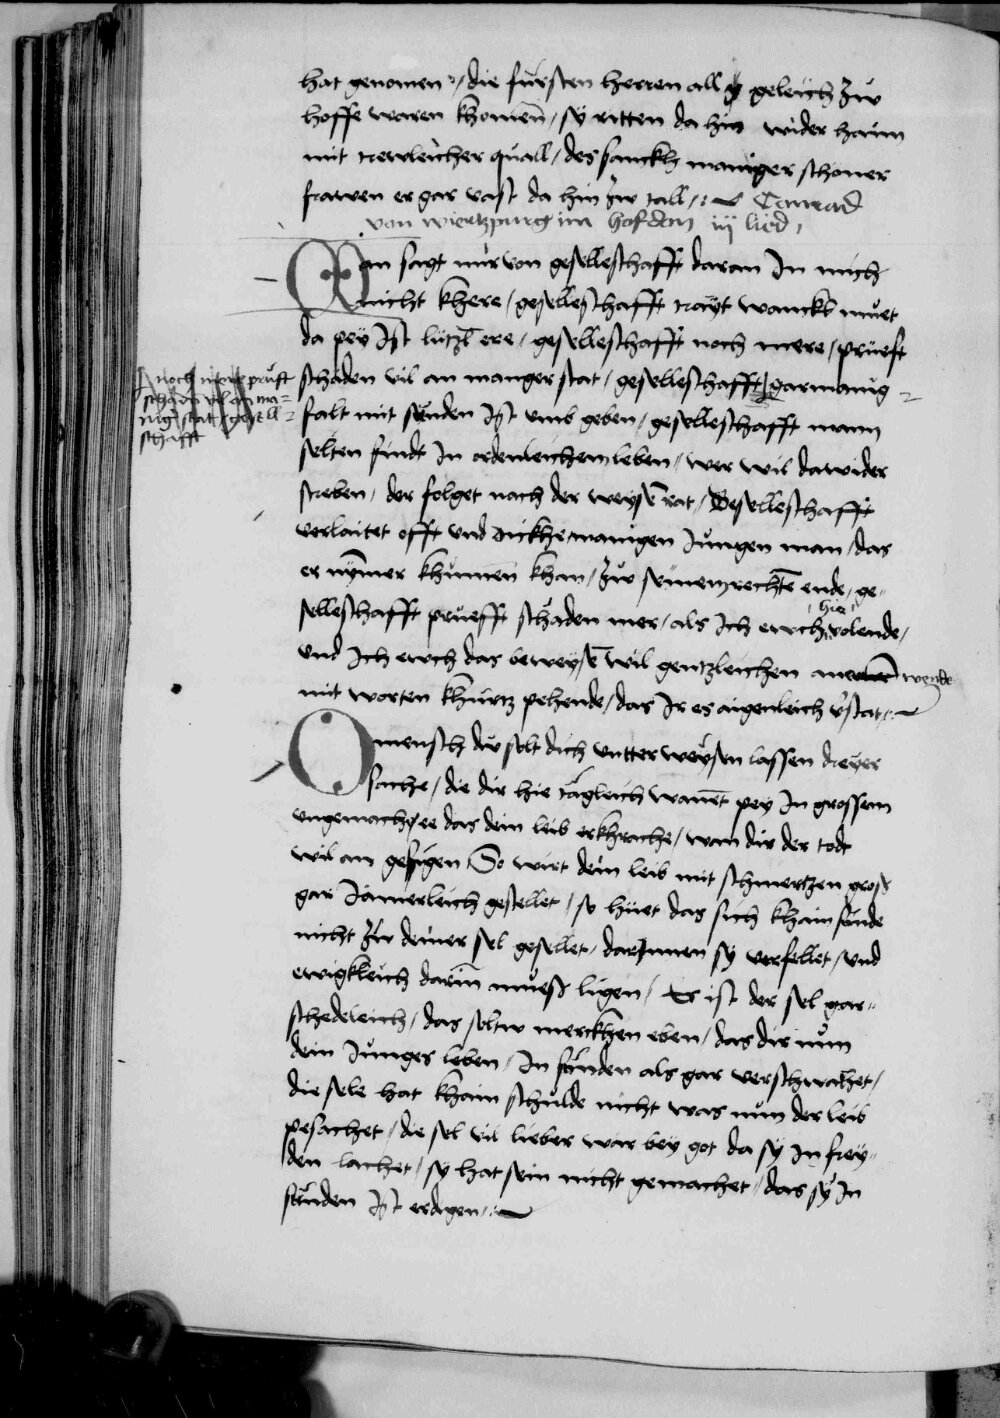 hat genomen / die fursten herren all geleich zw
hoffe waren khomen / sy ritten da hin wider haim
mit rewleicher quall / des sanckh maniger schoner
frawen er gar vast da hin zw tall /:~ Conrad
von wierczpurg im hofdon iij lied /
Man sagt mir von geselleschafft daran In mich
nicht khere / geselleschafft trayt wanckl muet
da pey Ist lutzl ere / geselleschafft noch mere / prueft
schaden vil an manger stat / geselleschafft gar manig=
falt mit sunden Ist vmb geben / geselleschafft mann
selten findt In ordenleichem leben / wer wil dawider
streben / der folget nach der weysen rat / Geselleschafft
verlaitet offt vnd dickhe manigen Jungen man / das
er nymer khumen khan / zw seinem rechten ende / ge=
selleschafft pruefft schaden mer / als Ich ewch hie volende /
vnd Ich ewch das beweysen wil gentzleichen an wende
mit worten khurtz pehende / das Ir es aigenleich verstat /:~
noch mere pruft
schaden vil an ma=
nig stat / gesell=
schafft
O mensch du solt dich vntter weysen lassen dreyer
sache / die dir hie tagleich wanet pey In grossem
vngemach / ee das dein leib erkhrache / wan dir der todt
wil an gesigen So wirt dein leib mit schmertzen gross
gar Jamerleich gestellet / so huet das sich khain sunde
nicht zw deiner sel gesellet / darInnen sy verfellet / vnd
ewigkleich darin muess ligen / Es ist der sel gar=
schedleich / das soltw merckhen eben / das dir nun
dein Junges leben / In sunden als gar verschwachet /
die sele hat khain schulde nicht was nun der leib
pesachet / die sel vil lieber war bey got da sy In frey=
den lachet / sy hat sein nicht gemachet / das sy In
sunden Ist erdigen /:~